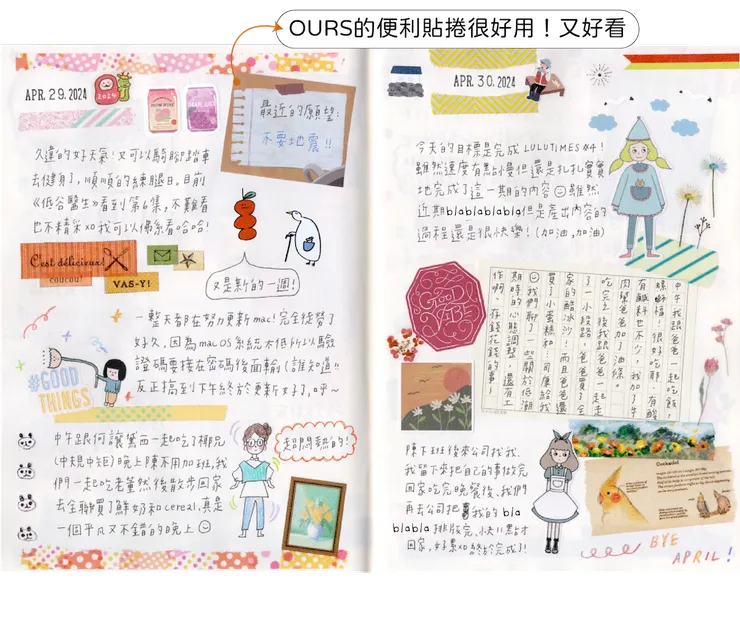 OURS的便利貼捲很好用！又好看
APR. 29. 2024
2024
最近的願望:
不要地震!!
久違的好天氣!又可以騎腳踏車
去健身了,順順的練腿日。目前
《低谷醫生》看到第4集,不難看
也不精采xD我可以偶爾看哈哈!
C'est délicieux!
coucou!
VAS-Y!
又是新的一週!
一整天都在努力更新mac!完全搞
好久,因為macOS系統太低所以驗
證碼要接在密碼後面輸(誰知道!!
反正搞到下午終於更新好了,呼~
#GOOD
THINGS
中午跟何讓黛西一起吃了
(中規中矩)晚上陳不用加班,我
們一起吃老董然後散步回家
去全聯買了鮮奶和cereal,真是
一個平凡又不錯的晚上
超悶熱的!
APR. 30. 2024
今天的目標是完成LULUTIMES #4!
雖然速度有點慢但還是扎扎實實
地完成了這一期的內容 雖然
近期blablablabla但是產出內容的
過程還是很快樂!(加油,加油)
GOOD
VIBE
中午我跟爸爸一起吃飯
吃完後我跟爸爸一起走
了一小段路,爸爸買了全
家的酷冰沙!而且爸爸還
買了小蛋糕和
我們聊了一些關於低潮
期時的心態調整,還有工
陳下班後來公司找我,
我留下來把自己的事做完
回家吃完晚餐後,我們
再去公司把我的bla
blabla排版完,快11點才
回家,好累xD終於完成了!
Cockatiel
BYE
APRIL!